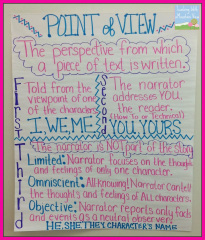 POINT OF VIEW
The perspective from which
a piece of text is written.
First
Told from the
viewpoint of one
of the characters
I, WE, ME
Second
The narrator
addresses YOU,
the reader.
(How To or Technical)
YOU, YOURS
Third
The narrator is NOT part of the story
Limited: Narrator focuses on the thoughts
and feelings of only one character.
Omniscient: All-Knowing! Narrator can tell
the thoughts and feelings of ALL characters.
Objective: Narrator reports only facts
and events as a neutral observer.
HE, SHE, THEY, CHARACTER'S NAME